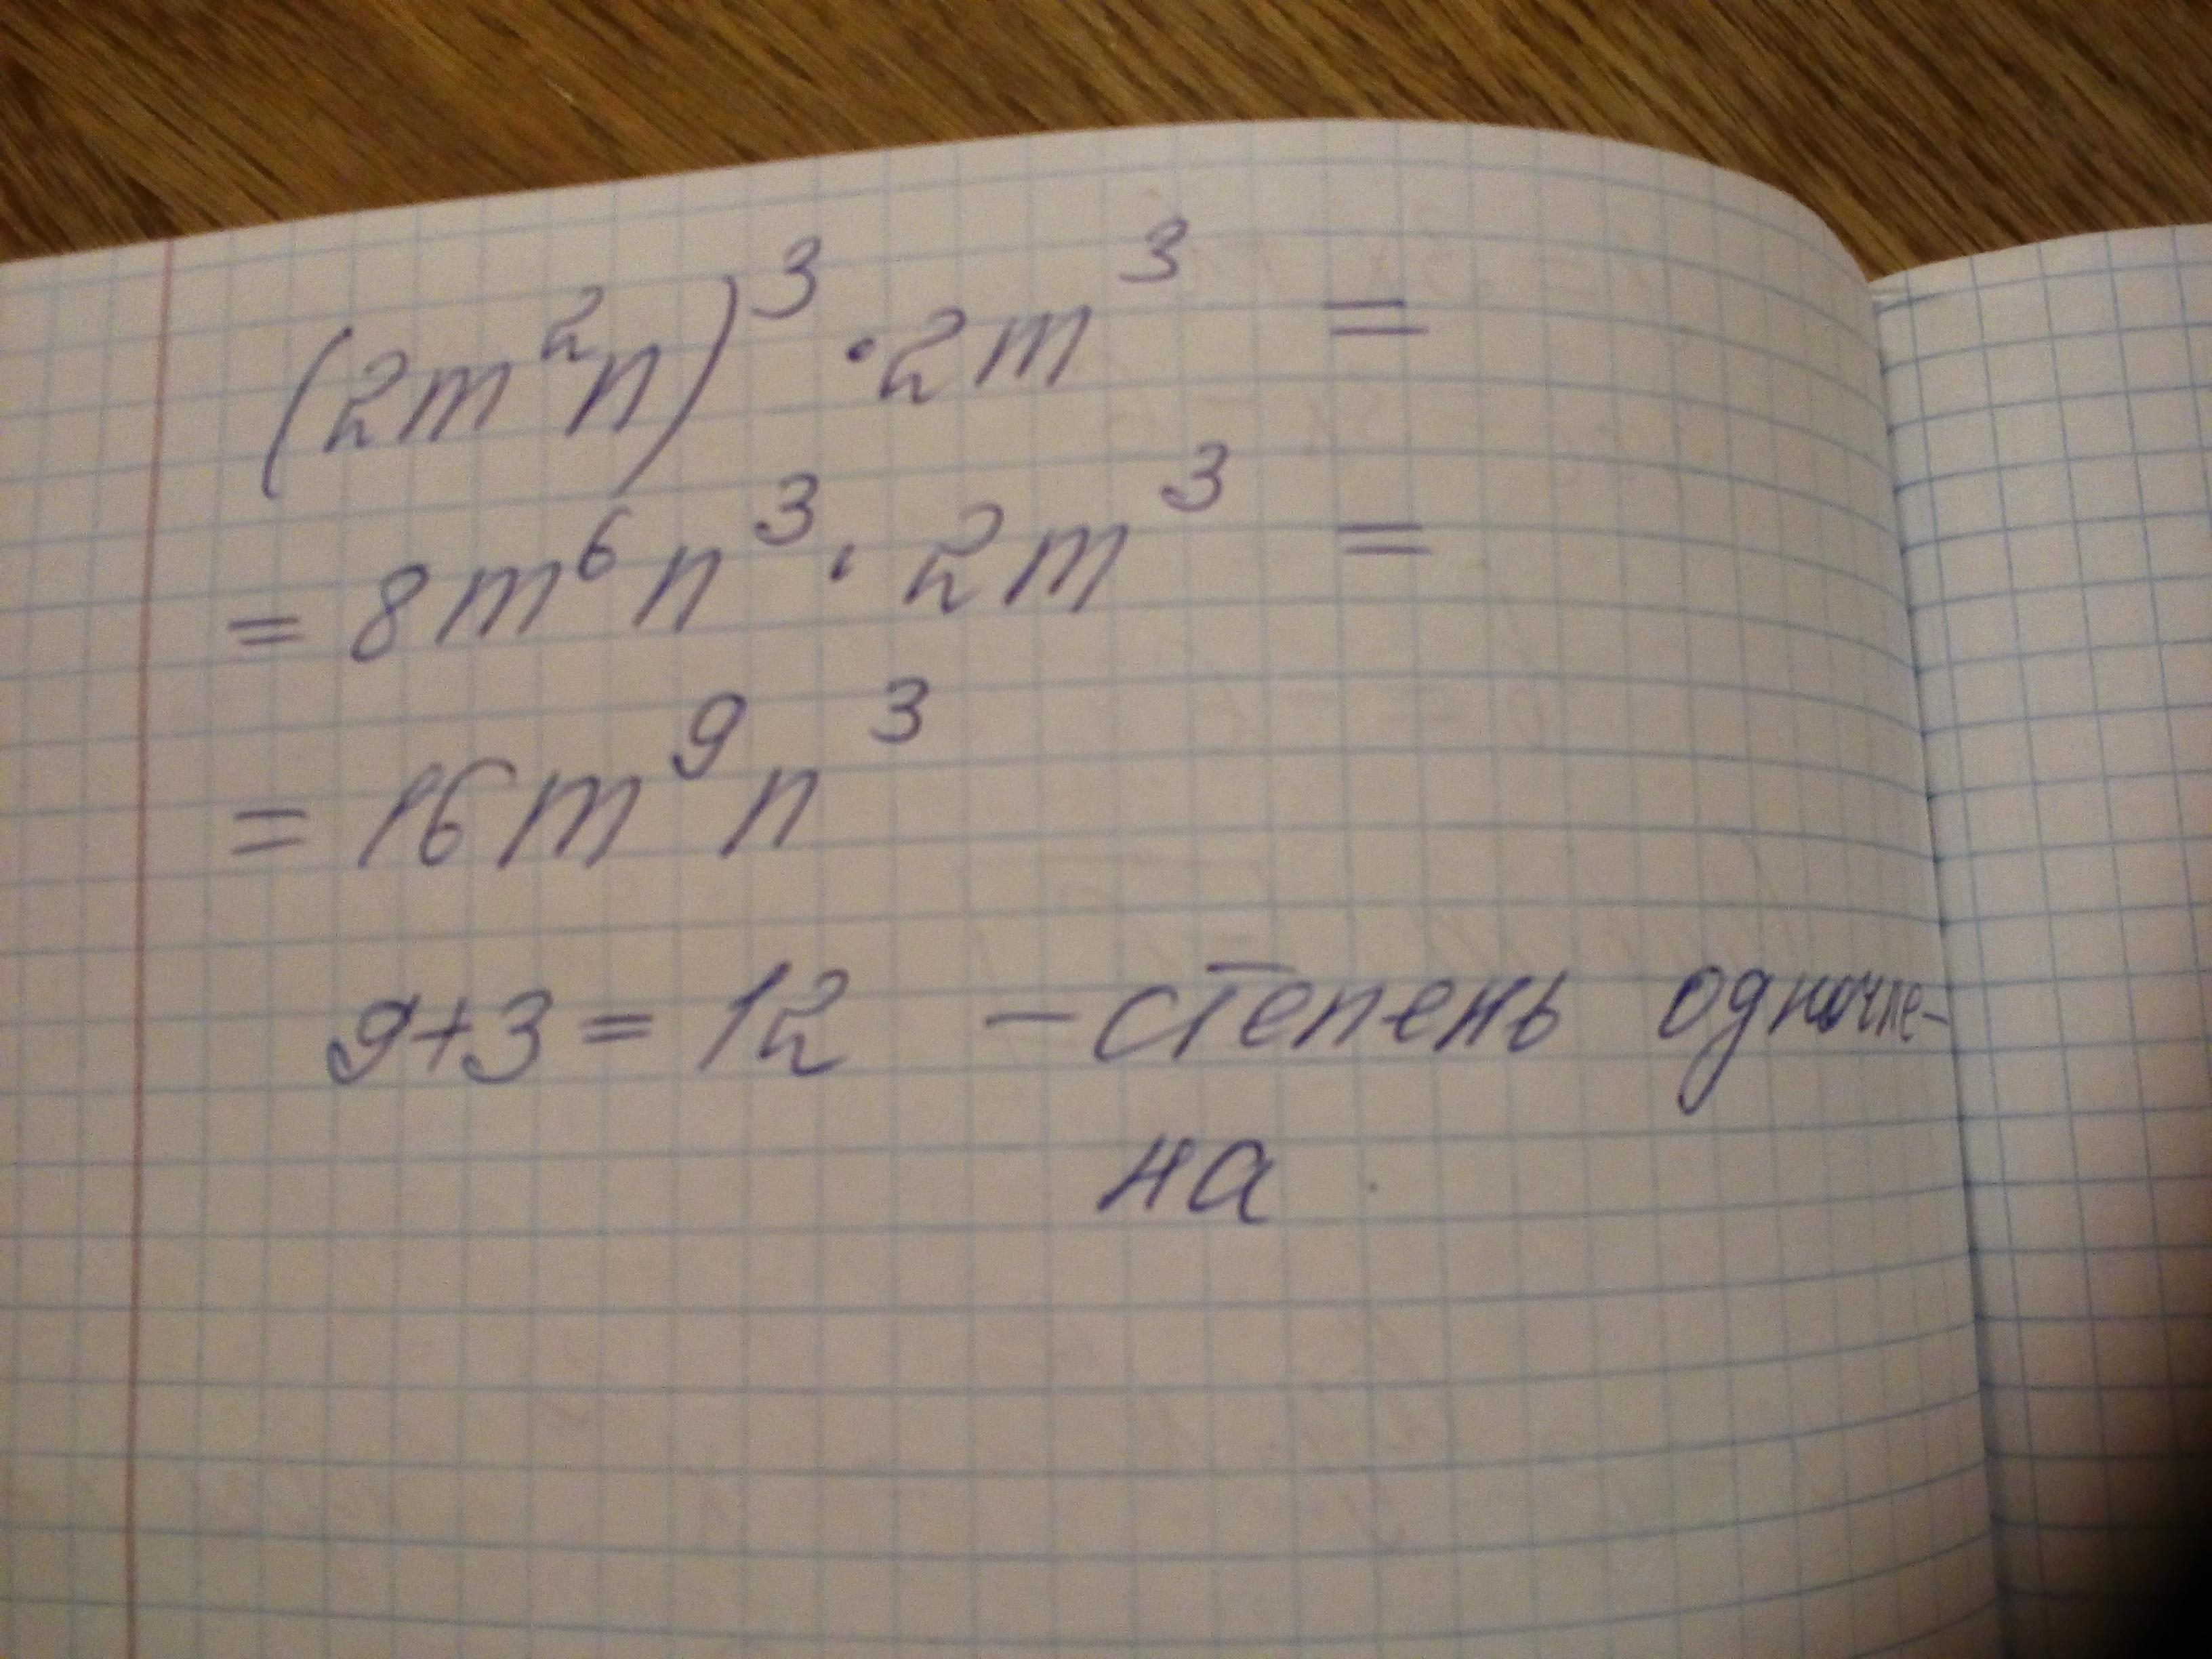 (2m²n)³ · 2m³ =
= 8m⁶n³ · 2m³ =
= 16m⁹n³
9+3 = 12 – степень одночле-
на